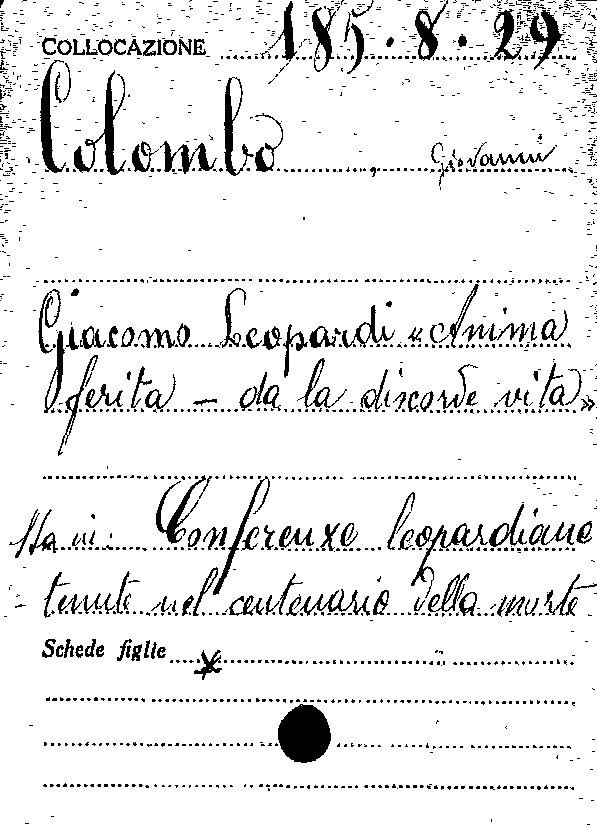 COLLOCAZIONE 185.8.29
Colombo, Giovanni
Giacomo Leopardi «Anima
ferita – da la discorde vita»
Sta in: Conferenze leopardiane
- tenute nel centenario della morte
Schede figlie x